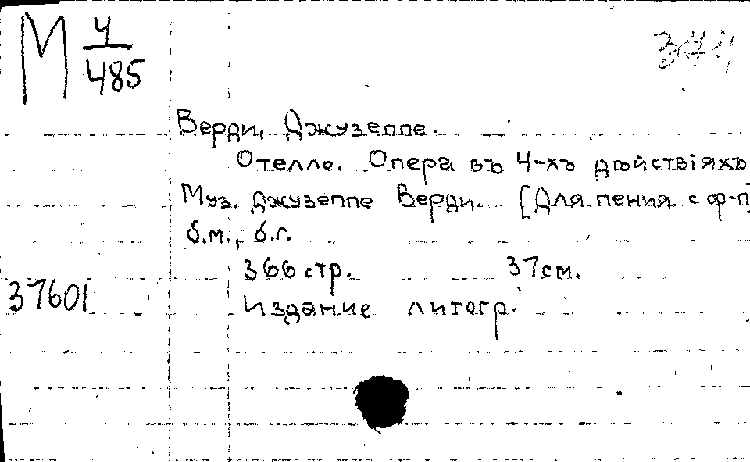 М 4/485
Верди, Джузеппе.
Отелло. Опера въ 4-хъ дѣйствіяхъ
Муз. Джузеппе Верди. [Для пения с ф-п]
б.м., б.г.
366 стр. 37 см.
37601
Издание литогр.